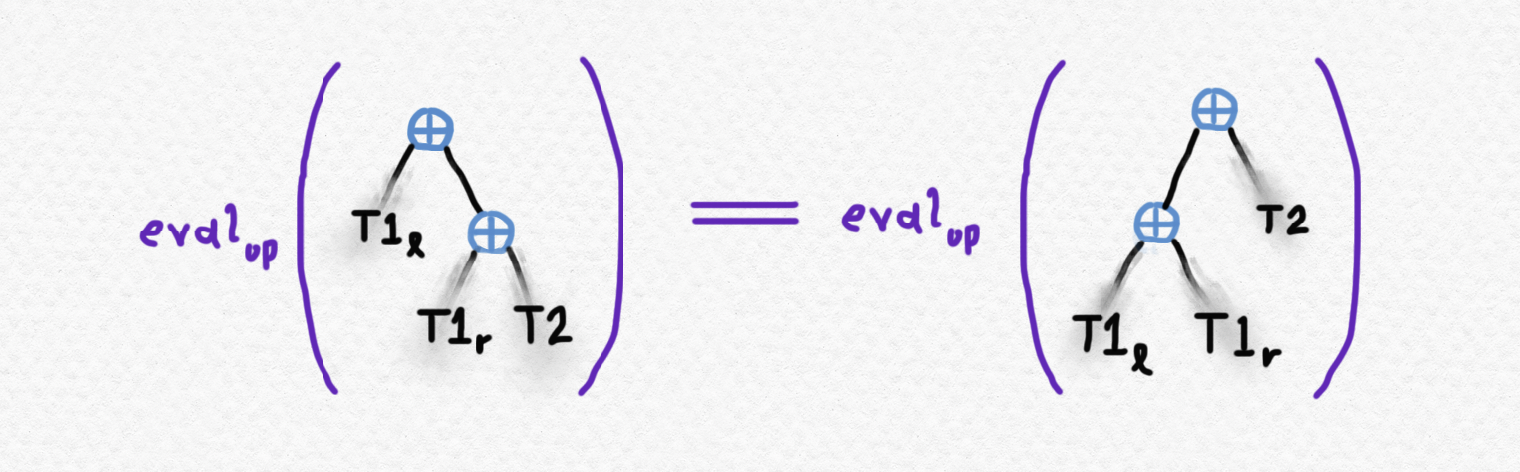 eval_op ( ⊕ T1_l ⊕ T1_r T2 ) = eval_op ( ⊕ ⊕ T2 T1_l T1_r )